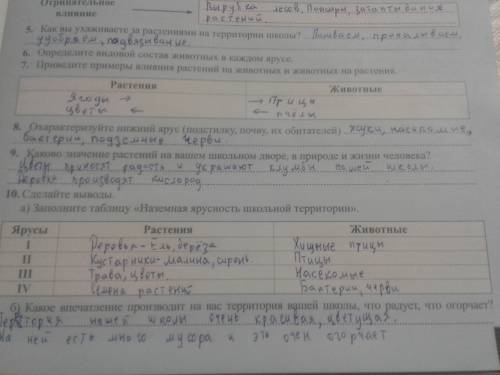 (Отрицательное
влияние
Вырубка лесов, Пожары, затаптывания
растений.
5. Как вы ухаживаете за растениями на территории школы? Поливаем, пропалываем,
удобряем, подвязывание.
6. Определите видовой состав животных в каждом ярусе.
7. Приведите примеры влияния растений на животных и животных на растения.
Растения Животные
Ягоды → → Птицы
Цветы ← ← пчёлы
8. Охарактеризуйте нижний ярус (подстилку, почву, их обитателей) жуки, насекомые,
бактерии, подземные черви.
9. Каково значение растений на вашем школьном дворе, в природе и жизни человека?
Цветы приносят радость и украшают клумбы нашей школы.
Деревья производят кислород
10. Сделайте выводы.
а) Заполните таблицу «Наземная ярусность школьной территории».
Ярусы Растения Животные
I Деревья - Ель, берёза Хищные птицы
II Кустарники - малина, сирень Птицы
III Трава, цветы. Насекомые
IV Семена растений Бактерии, черви
б) Какое впечатление производит на вас территория вашей школы, что радует, что огорчает?
Территория нашей школы очень красивая, цветущая.
На ней есть много мусора и это очен огорчает